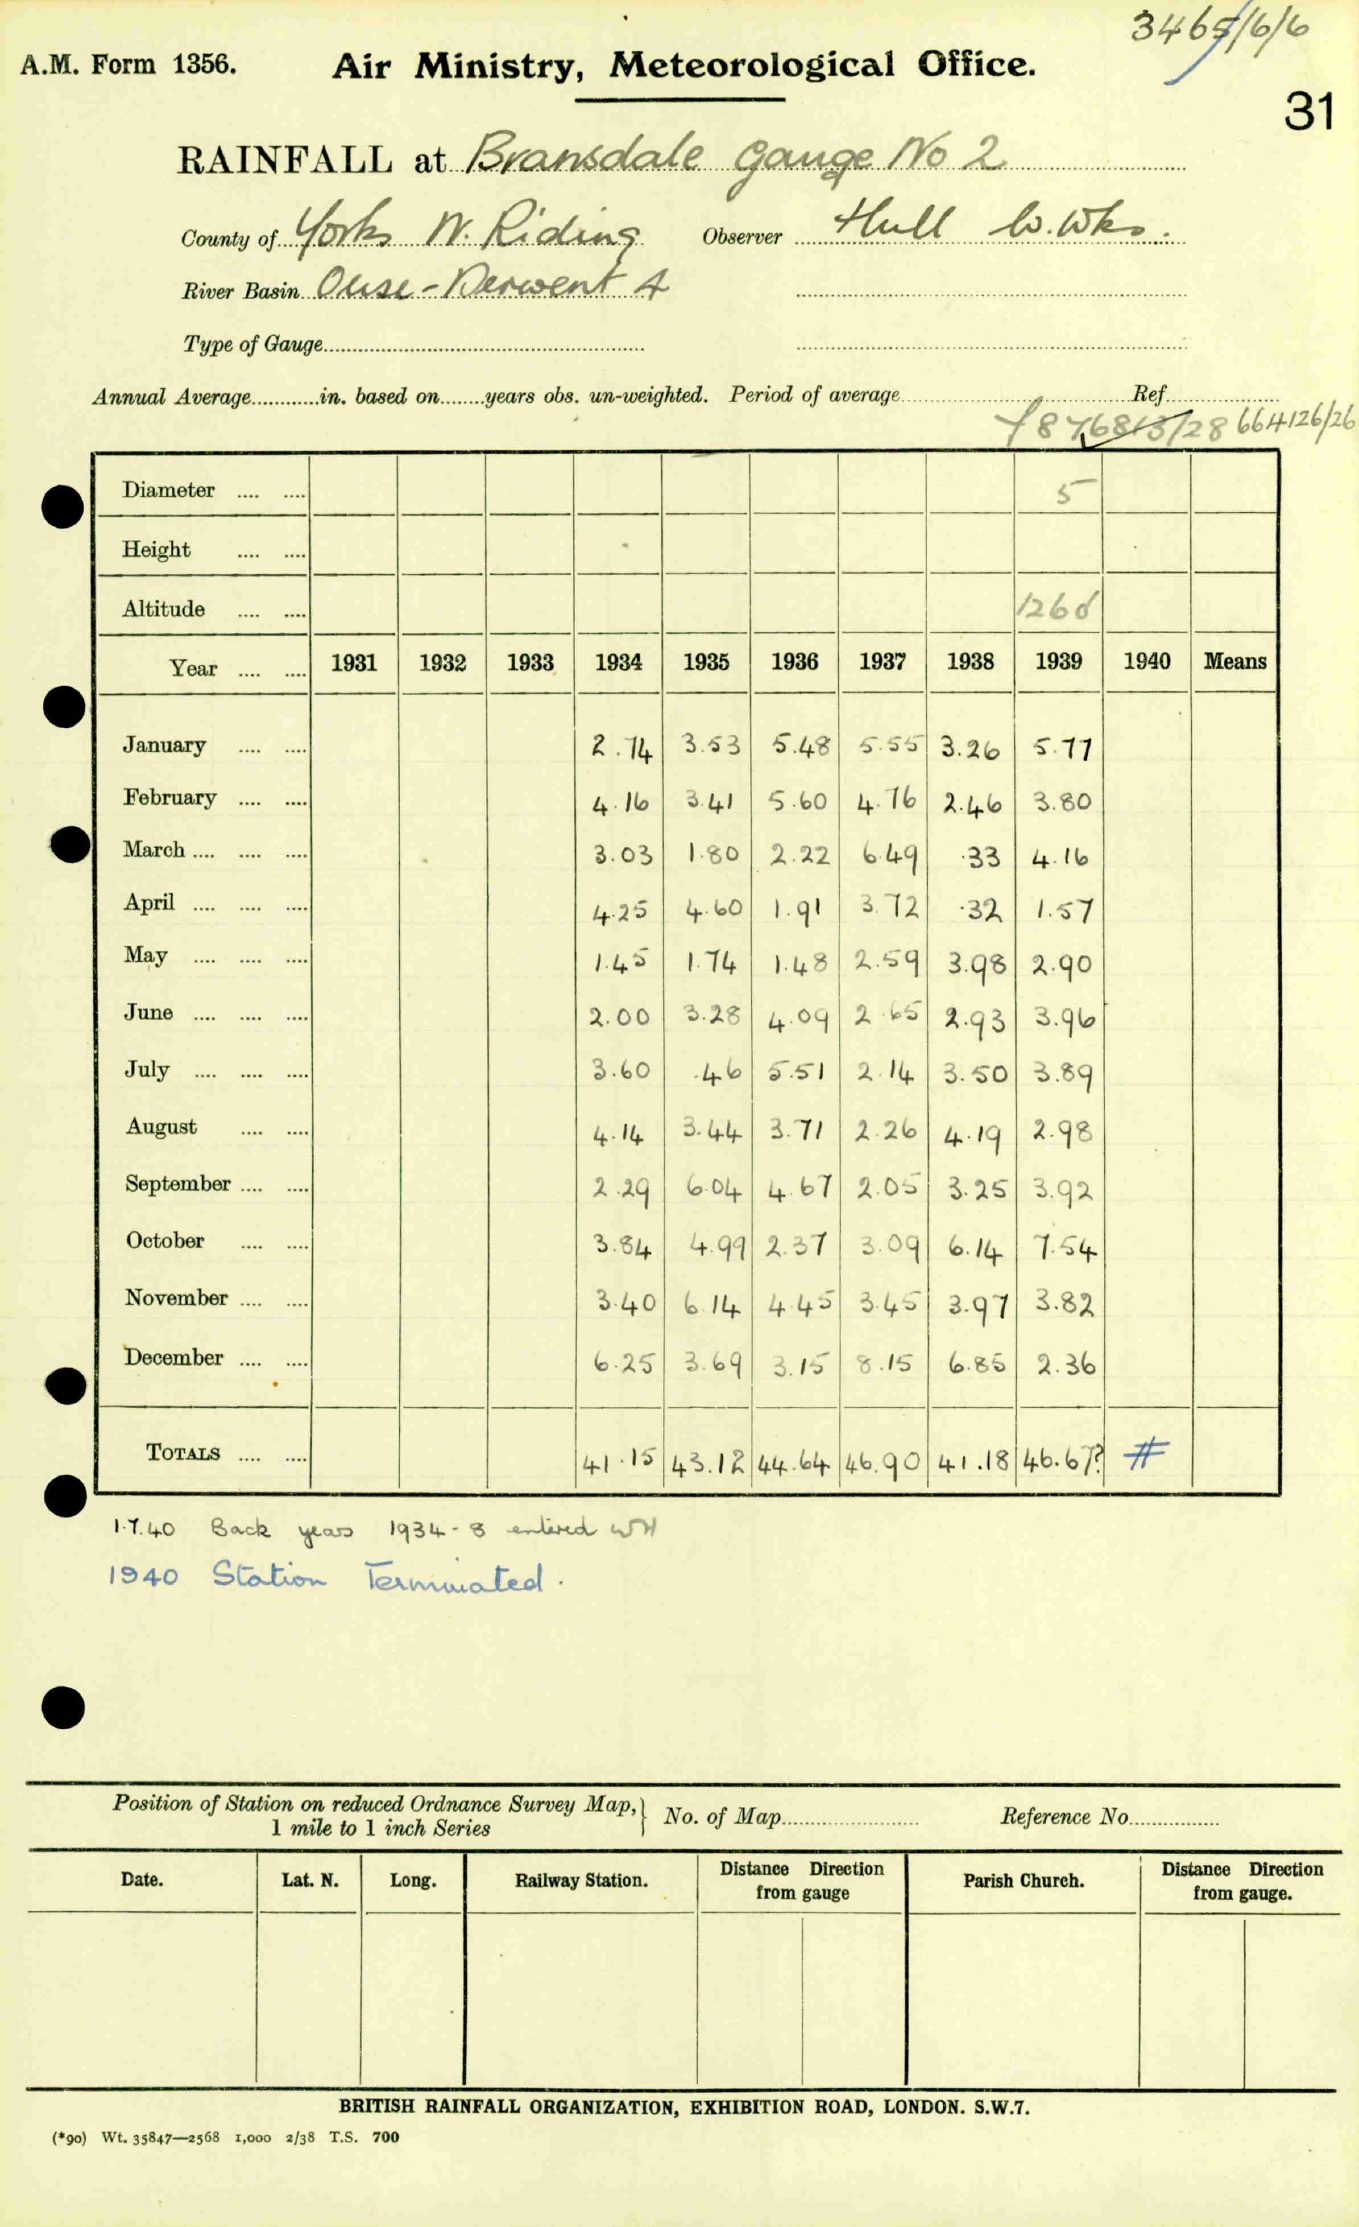 3465/6/6
A.M. Form 1356. Air Ministry, Meteorological Office.
31
RAINFALL at Bransdale Gauge No 2
County of Yorks N. Riding Observer Hull W. Wks.
River Basin Ouse-Derwent 4
Type of Gauge
Annual Average............in. based on........years obs. un-weighted. Period of average Ref.
664126/26
Diameter .... .... 5
Height .... ....
Altitude .... .... 1260
Year .... .... 1931 1932 1933 1934 1935 1936 1937 1938 1939 1940 Means
January .... .... 2.74 3.53 5.48 5.55 3.26 5.77
February .... .... 4.16 3.41 5.60 4.76 2.46 3.80
March .... .... .... 3.03 1.80 2.22 6.49 .33 4.16
April .... .... .... 4.25 4.60 1.91 3.72 .32 1.57
May .... .... .... 1.45 1.74 1.48 2.59 3.98 2.90
June .... .... .... 2.00 3.28 4.09 2.65 2.93 3.96
July .... .... .... 3.60 .46 5.51 2.14 3.50 3.89
August .... .... 4.14 3.44 3.71 2.26 4.19 2.98
September .... .... 2.29 6.04 4.67 2.05 3.25 3.92
October .... .... 3.84 4.99 2.37 3.09 6.14 7.54
November .... .... 3.40 6.14 4.45 3.45 3.97 3.82
December .... .... 6.25 3.69 3.15 8.15 6.85 2.36
TOTALS .... .... 41.15 43.12 44.64 46.90 41.18 46.67? #
1.7.40 Back years 1934-8 entered WH
1940 Station Terminated.
Position of Station on reduced Ordnance Survey Map, 1 mile to 1 inch Series } No. of Map Reference No.
Date. Lat. N. Long. Railway Station. Distance Direction from gauge Parish Church. Distance Direction from gauge.
BRITISH RAINFALL ORGANIZATION, EXHIBITION ROAD, LONDON. S.W.7.
(*90) Wt. 35847—2568 1,000 2/38 T.S. 700